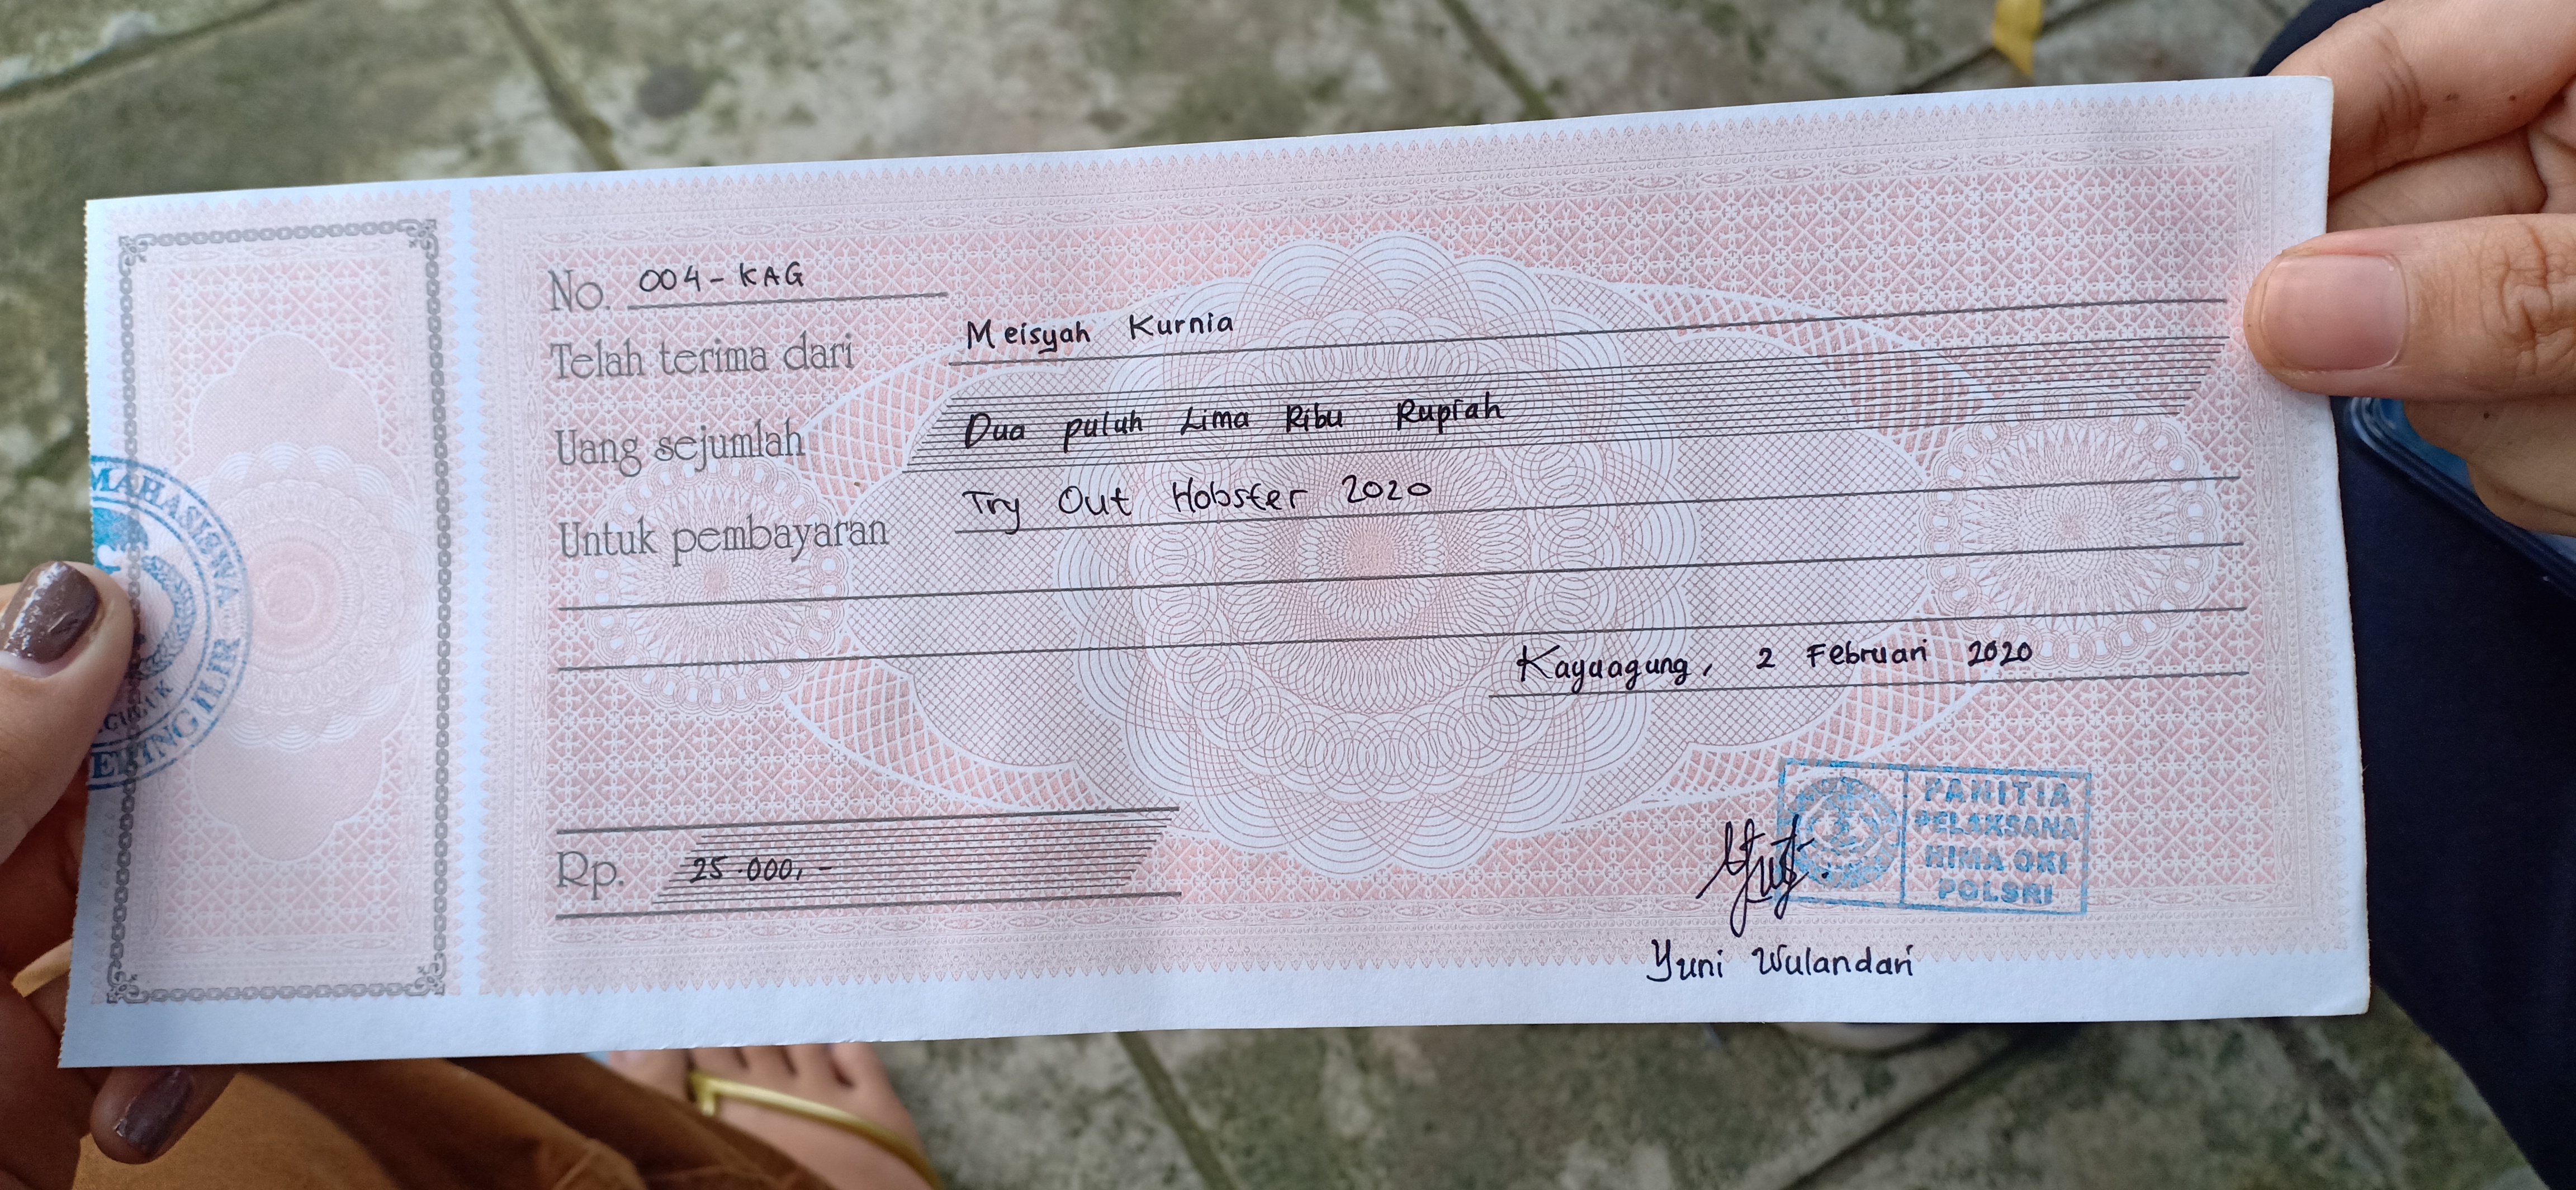 No. 004-KAG
Telah terima dari Meisyah Kurnia
Uang sejumlah Dua puluh Lima Ribu Rupiah
Untuk pembayaran Try Out Hobster 2020
Kayuagung, 2 Februari 2020
Rp. 25.000,-
PANITIA
PELAKSANA
HIMA OKI
POLSRI
Yuni Wulandari
MAHASISWA
ILIR